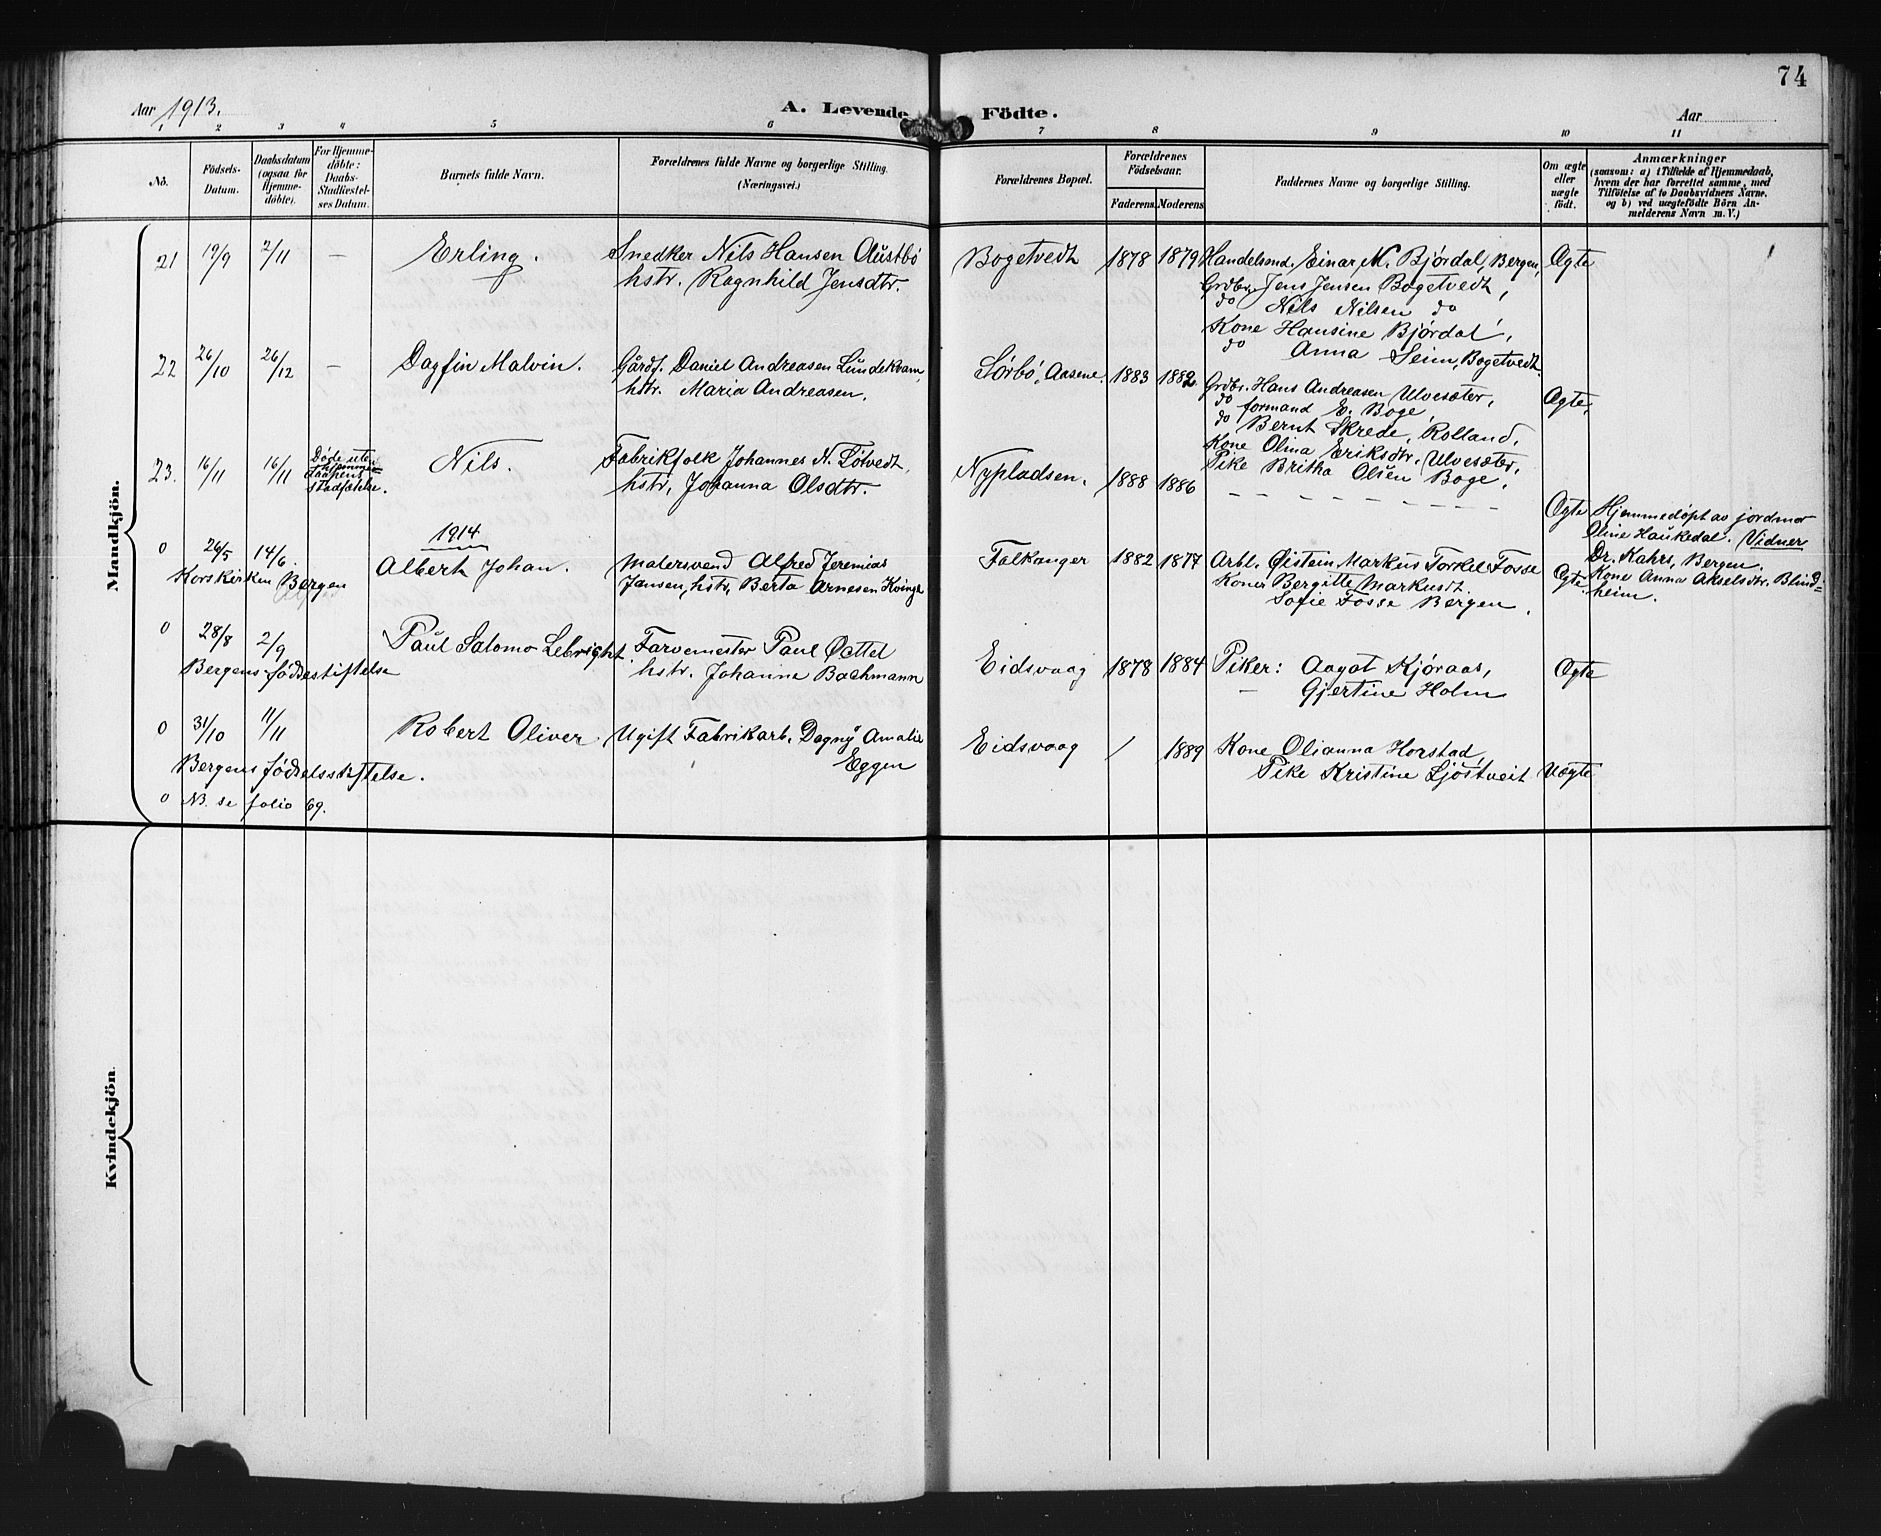 74
Aar 1913.
A. Levende Födte.
Aar
1 2 3 4 5 6 7 8 9 10 11
No.
Födsels-
Datum.
Daabsdatum
(ogsaa for
Hjemme-
döbte).
For Hjemme-
döbte:
Daabs-
Stadfæstel-
ses Datum.
Barnets fulde Navn.
Forældrenes fulde Navne og borgerlige Stilling.
(Næringsvei.)
Forældrenes Bopæl.
Forældrenes
Födselsaar.
Faderens. Moderens.
Faddernes Navne og borgerlige Stilling.
Om ægte
eller
uægte
födt.
Anmærkninger
(saasom: a) i Tilfælde af Hjemmedaab,
hvem der har forrettet samme, med
Tilföielse af to Daabsvidners Navne,
og b) ved uægtefödte Börn An-
melderens Navn m. V.)
Mandkjön.
21 19/9 2/11 — Erling. Snedker Nils Hansen Austbö
hstr. Ragnhild Jensdtr.
Bogetvedt 1878 1879 Handelsmd. Einar M. Bjørdal, Bergen,
Grdbr. Jens Jensen Bogetvedt,
do Nils Nilsen do
Kone Hansine Bjørdal,
do Anna Seim, Bogetvedt.
Ægte
22 26/10 26/12 — Dagfin Malvin. Gårdf. Daniel Andreasen Lundekvam,
hstr. Maria Andreasen.
Sørbø, Aasene. 1883 1882 Grdbr. Hans Andreasen Ulvesæter,
do formand E. Boge,
do Bernt Skrede, Rolland,
Kone Olina Eriksdtr. Ulvesæter,
Pike Britha Olsen Boge.
Ægte.
23. 16/11 16/11 Døde uten
stadfække.
Nils. Fabrikfolk Johannes N. Tøtvedt,
hstr. Johanna Olsdtr.
Nypladsen. 1888 1886 — — — — — — —
Ægte Hjemmedøpt av jordmor
Oline Haukedal. Vidner
Dr. Kahrs, Bergen.
Kone Anna Akselsdtr. Blind-
heim.
1914
0 26/5 14/6. Albert Johan. Malersvend Alfred Jeremias
Korskirken Bergen Jansen, hstr. Berta Arnesen Kvinge
Falkanger 1882 1877 Arb. Øistein Markus Torkel Fosse
Koner Bergitte Markusdt.
Sofie Fosse Bergen.
Ægte.
0 28/8 2/9 Paul Salomo Lebright. Farvemester Paul Oettel
Bergens Fødestiftelse hstr. Johanne Bachmann
Eidsvaag 1878 1884 Piker: Aagot Kjøraas,
— Gjertine Holm
Ægte
0 31/10 11/11 Robert Oliver. Ugift Fabrikarb. Dagny Amalie
Eggen
Bergens Fødselsstiftelse.
Eidsvaag / 1889 Kone Olianna Horstad,
Pike Kristine Ljøstveit
Uægte
0 NB. se folio 69.
Kvindekjön.